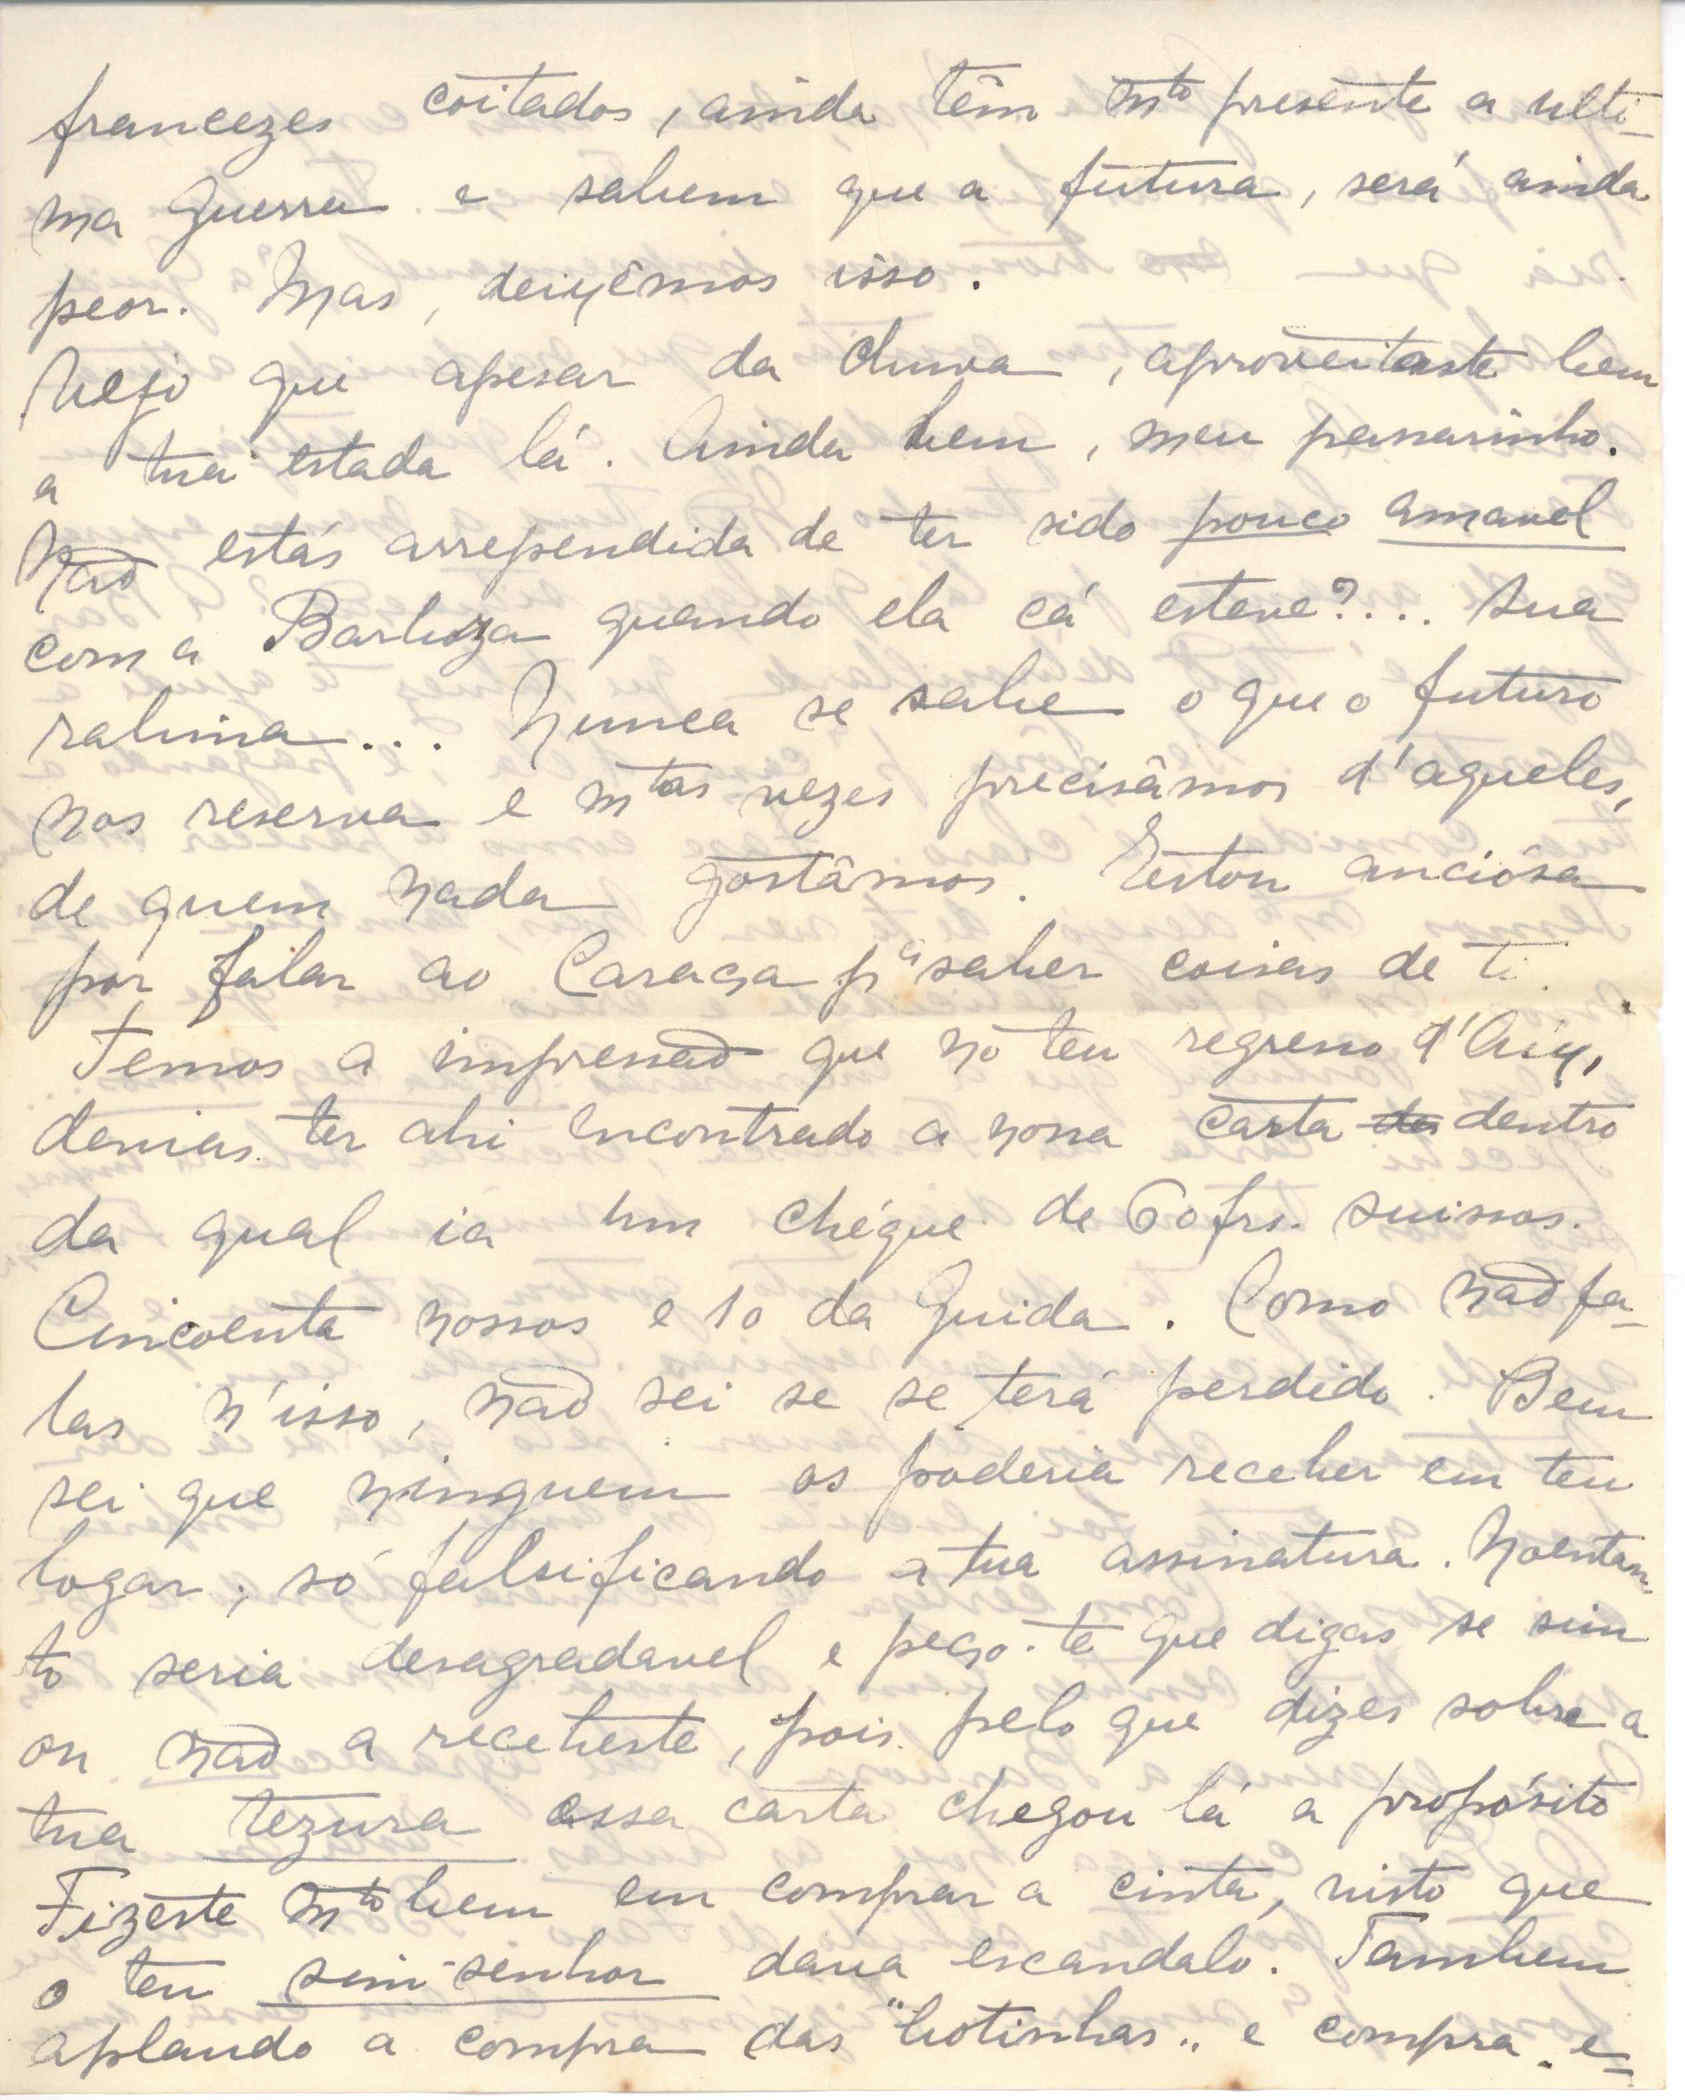 francezes coitados, ainda têm mto presente a ulti-
ma Guerra e sabem que a futura, será ainda
peor. Mas, deixêmos isso.
Vejo que apesar da chuva, aproveitaste bem
a tua estada lá. Ainda bem, meu passarinho.
Não estás arrependida de ter sido pouco amavel
com a Barboza quando ela cá esteve?... Sua
rabina... Nunca se sabe o que o futuro
nos reserva e mtas vezes precisâmos d'aqueles,
de quem nada gostâmos. Estou anciósa
por falar ao Caraça pa saber coisas de ti.
Temos a impressão que no teu regresso d'Aix,
devias ter ahi encontrado a nossa carta da dentro
da qual ia um chéque de 60 frs. suissos.
Cincoenta nossos e 10 da Guida. Como não fa-
las n'isso, não sei se se terá perdido. Bem
sei que ninguem os poderia receber em teu
logar, só falsificando a tua assinatura. Noentan-
to seria desagradavel e peço-te que digas se sim
ou não a recebeste, pois pelo que dizes sobre a
tua tezura essa carta chegou lá a propósito
Fizeste mto bem em comprar a cinta, visto que
o teu sim-senhor dava escandalo. Tambem
aplaudo a compra das "botinhas" e compra-e-